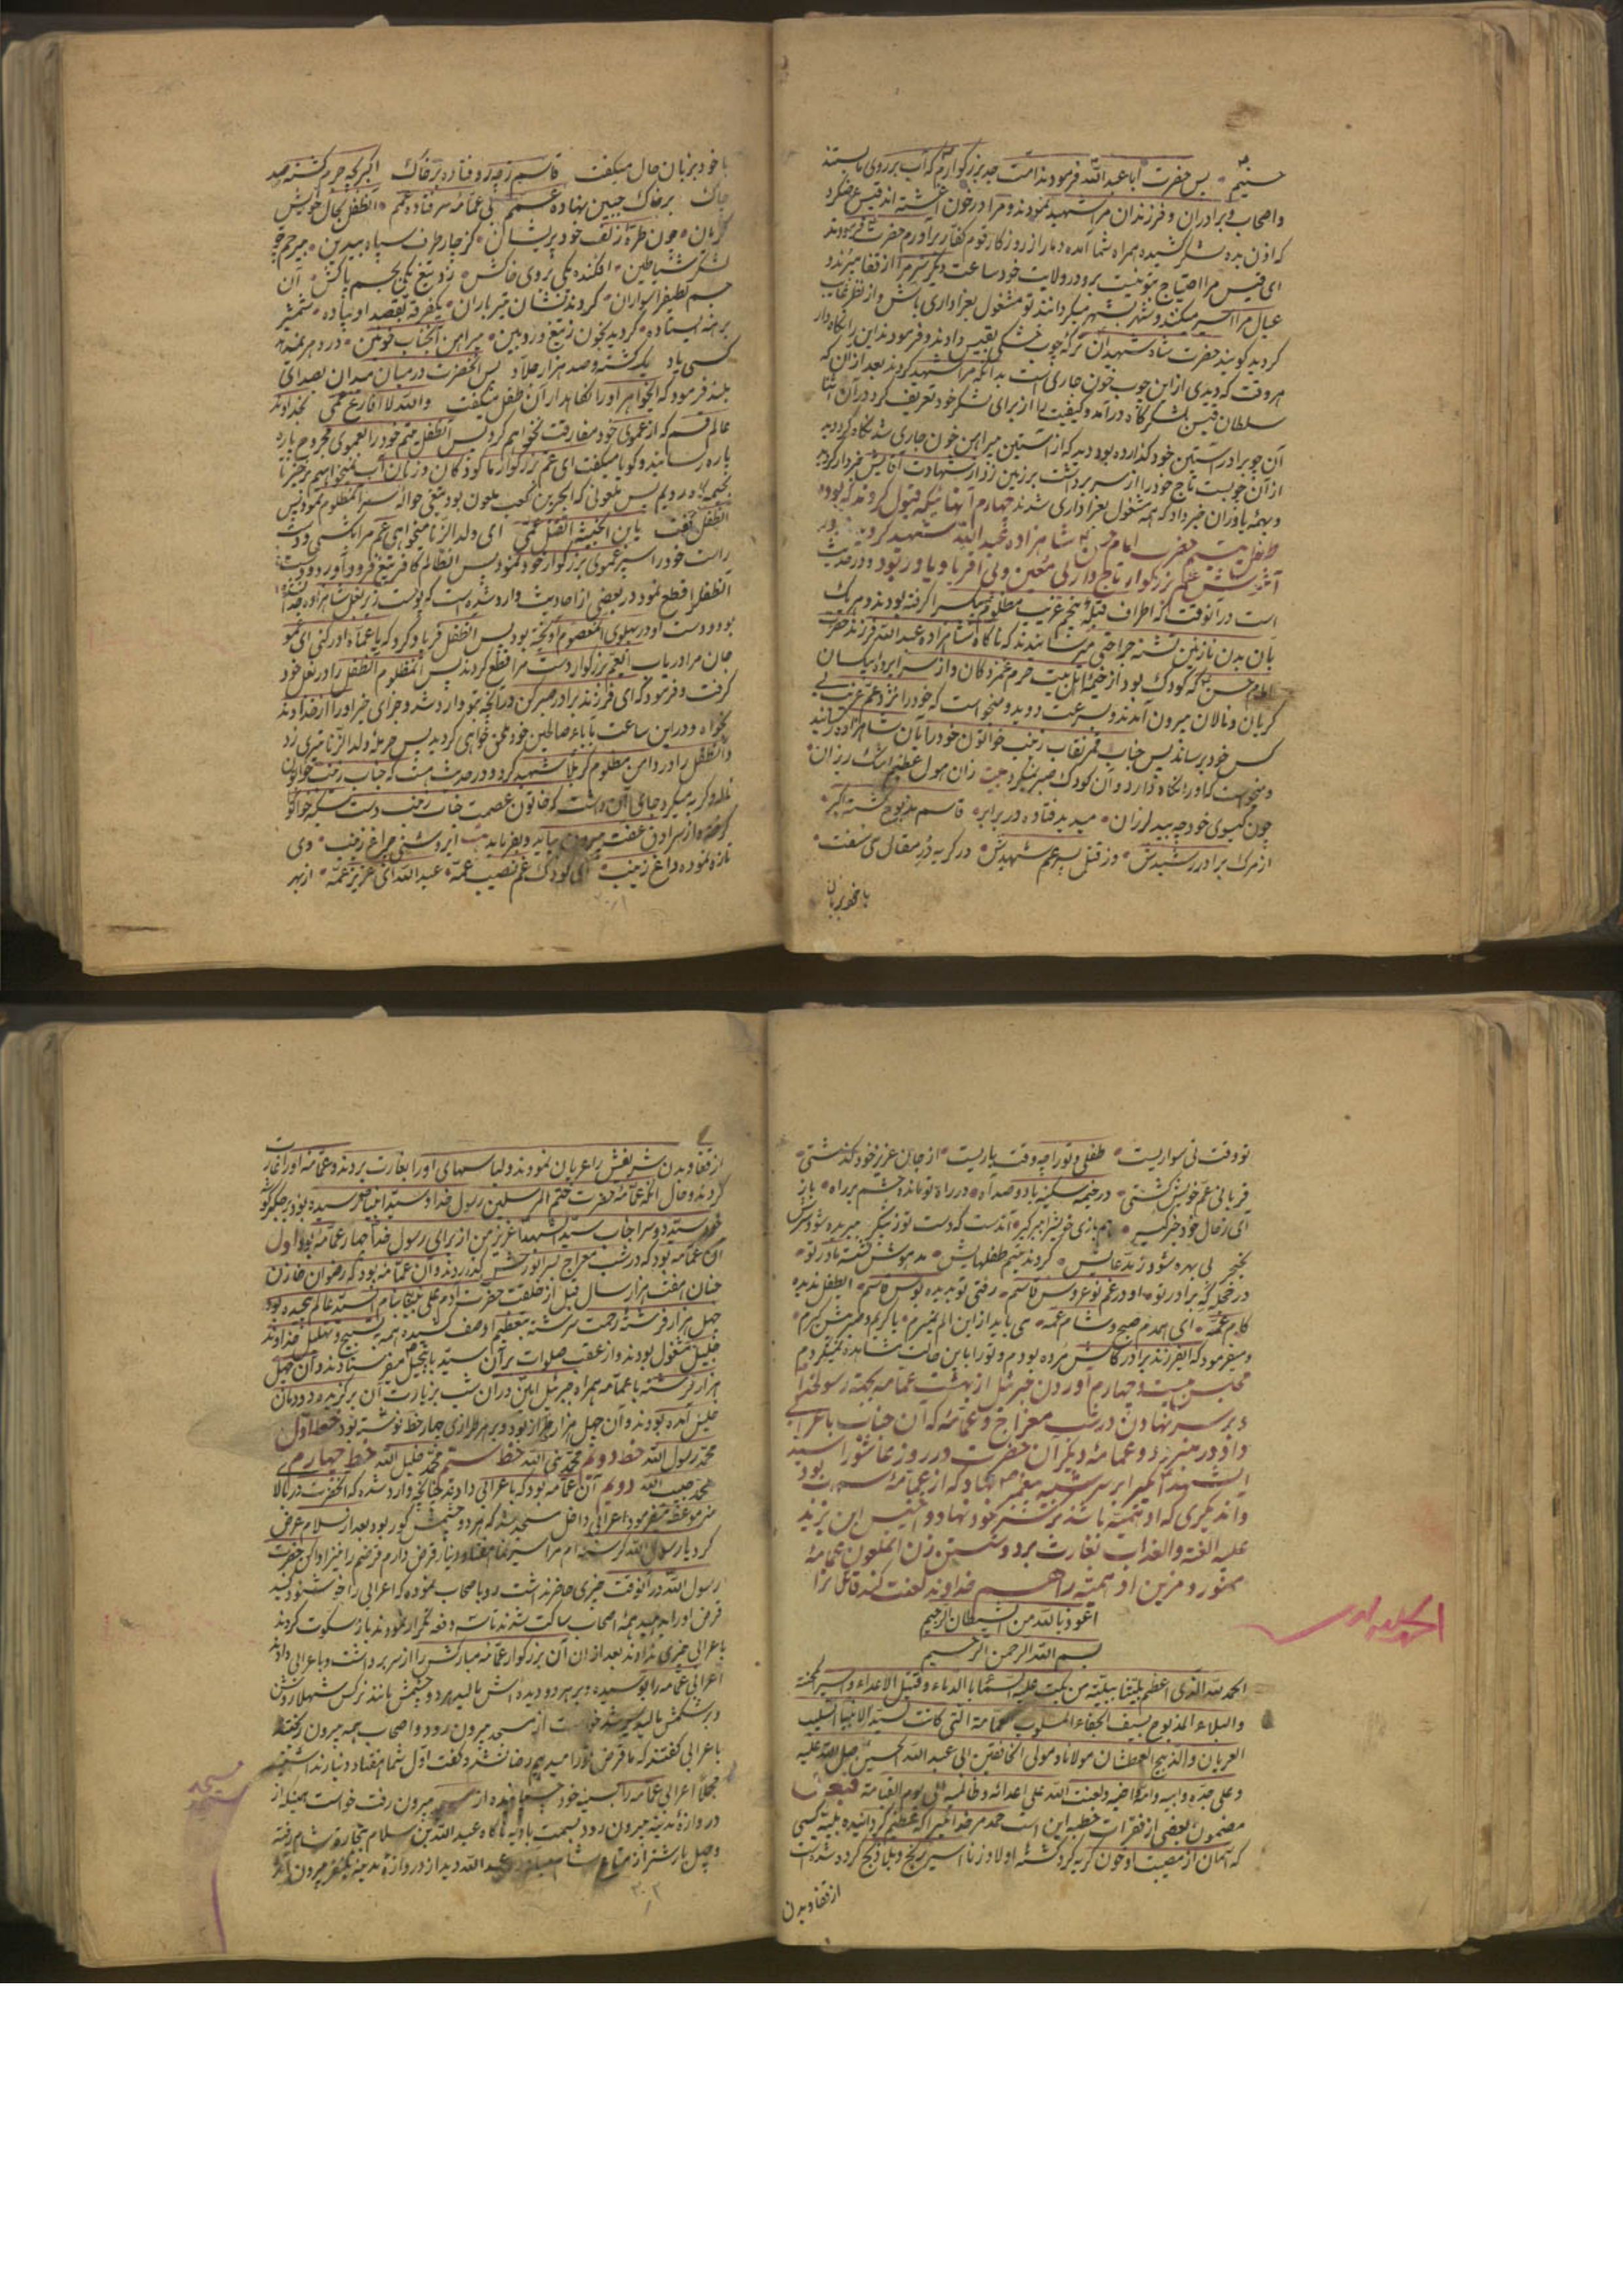 حسینم پس حضرت ابا عبد الله فرمودند امت جد بزرگوارم که آب بر روی ما بستند
و اصحاب و برادران و فرزندان مرا شهید نمودند و مرا در خون آغشته اند قیس عرض کرد
که اذن بده لشکر کشیده همراه شما آمده دمار از روزگار قوم کفار برآورم حضرت فرمودند
ای قیس مرا احتیاج بتو نیست برو در ولایت خود ساعت دیگر سر مرا از قفا میبرند و
عیال مرا اسیر میکنند و شهر بشهر میگردانند تو مشغول بعزاداری باش و از نظر غایب
کردید گویند حضرت شاه شهیدان ترکه چوب خشکی بقیس دادند و فرمودند این را نگاه دار
هر وقت که دیدی از این چوب خون جاری است بدانکه مرا شهید کردند بعد از آن که
سلطان قیس بلشکرگاه در آمد و کیفیت را از برای لشکر خود تعریف کرد در آن اثنا
آن چوب را در آستین خود گذارده بود دید که از آستین پیراهن خون جاری شد نگاه کرد دید
از آن چوبست تاج خود را از سر برداشت بر زمین زد از شهادت آقایش خبردار کردید
و بهمه یاوران خبر داد که همه مشغول بعزاداری شدند چهارم آنهائیکه قبول کردند که بود
طفل یتیم حضرت امام حسن شاهزاده عبد الله شهید کرد
آغوش عم بزرگوار تاج دار بی معین و بی اقربا و یاور بود و در حدیث
است در آنوقت که اطراف قبله پنجم غریب مظلوم بیکس را گرفته بودند و هر یک
بآن بدن نازنین تشنه جراحتی میرسانیدند که ناگاه شاهزاده عبد الله فرزند حضرت
امام حسن که کودک بود از خیمه اهل بیت حرم غمزدگان و از سراپرده بیکسان
گریان و نالان بیرون آمدند و بسرعت دوید و میخواست که خود را نزد عم غریب بی
کس خود برساند پس جناب قمر نقاب زینب خواتون خود را بآن شاهزاده رسانید
و میخواست که او را نگاه دارد و آن کودک صبر نمیکرد بیت زان هول عظیم اشک ریزان
چون گیسوی خود چه بید لرزان میدید فتاده در برابر قاسم مذبوح کشته اکبر
از مرک برادر رشیدش وز قتل پسر عم شهیدش در گریه در مقال می سفت
با خود بزبان
با خود بزبان حال میگفت قاسم زچه رو فتاده بر خاک اکبر بچه جرم کشته صد
چاک بر خاک جبین نهاده عمم بی عمامه سر فتاده عمم آنطفل بحال خویش
گریان چون طره زلف خود پریشان کز چار طرف سپاه بیدین بیرحم چو
لشکر شیاطین افکنده یکی بروی خاکش زد تیغ یکی بجسم پاکش آن
جسم لطیف را سواران کردند نشان تیر باران یکفرقه بقصد او پیاده شمشیر
برهنه ایستاده گردید بخون ز تیغ و زوبین پیراهن آنجناب خونین
کسی یاد یک کشته و صد هزار جلاد پس آنحضرت در میان میدان بصدای
بلند فرمود که ایخواهر او را نگاهدار آن طفل میگفت والله لا افارق عمی بخداوند
عالم قسم که از عموی خود مفارقت نخواهم کرد پس آنطفل یتیم خود را بعموی مجروح پاره
پاره رسانید و گویا میگفت ای عم بزرگوار ما کودکان و زنان آب نمیخواهیم برخیز تا
بخیمه ها رویم پس ملعونی که ابحر بن کعب ملعون بود تیغی حواله سر آنمظلوم نمود پس
آنطفل گفت یابن الخبیثه اتقتل عمی ای ولد الزنا میخواهی عم مرا بکشی و دست
راست خود را سپر عموی بزرگوار خود نمود پس آنظالم کافر تیغ فرود آورد و دست
آنطفل را قطع نمود در بعضی از احادیث وارد شده است که پوست زیر بغل شاهزاده
بود و دست او در پهلوی آنمعصوم آویخته بود پس آنطفل فریاد کرد که یا عماه ادرکنی ای عمو
جان مرا دریاب ایعم بزرگوار دست مرا قطع کردند پس آنمظلوم آنطفل را در بغل خود
گرفت و فرمود که ای فرزند برادر صبر کن در آنچه بتو وارد شد و جزای خیر او را از خداوند
بخواه و در این ساعت بآباء صالحین خود ملحق خواهی گردید پس حرمله ولد الزنا تیری زد
و آنطفل را در دامن مظلوم کربلا شهید کرد و در حدیث هست که جناب زینب خواتون
و گریه میکرد جای آن داشت که خاتون عصمت جناب زینب دست سکینه خواتون
گرفته و از سرادق عفت بیرون بیاید و بفرماید بیت ای روشنی چراغ زینب وی
تازه نموده داغ زینب ای کودک غم نصیب عمه عبد الله ای عزیز عمه از بهر
۳۰۱
تو وقت نی سواریست طفلی و تو را چه وقت یاریست از جان عزیز خود گذشتی
قربانی عم خویش گشتی در خیمه سکینه باد و صد آه در راه تو مانده چشم بر راه باز
ای ز حال خود خبر گیر بازی خویش از سر گیر آندست که دست تو ز پیکر ببریده شود سرش
بخنجر بی بهره شود ز مدعایش کردند یتیم طفلهایش مدهوش نشسته مادر تو
در حجله برادر تو او در غم نو عروس قاسم رفتی تو بدیده بوس قاسم ایطفل ندیده
کام عمه ای همدم صبح و شام عمه می باید از این الم بمیرم باگریم و پیرهنش گیرم
و میفرمود که ایفرزند برادر کاش مرده بودم و تو را باین حالت مشاهده نمیکردم
مجلس بیست و چهارم آوردن جبرئیل از بهشت عمامه بجهة رسولخدا
و بر سر نهادن در شب معراج و عمامه که آن جناب باعرابی
داد در منبر و دو عمامه دیگر آن حضرت در روز عاشورا سید
الشهدا یکی را بر سر شبیه پیغمبر نهاد که از عمامه سر بود
و اندیگری که او نتیمه باشد بر سر خود نهاد و اخنس ابن یزید
علیه الغنة والعذاب بغارت برد و شستن زن آنملعون عمامه
ممنور و مزین او همیته راهیم خداوند لعنت کند قاتل ترا
اعوذ بالله من الشیطان الرجیم
بسم الله الرحمن الرحیم
الحمد لله الذی اعظم بلیتنا ببلیة من بکت علیه السماء بالدماء و قتیل الاعداء و اسیر المحنة
والبلاء المذبوح بسیف الجفاء المسلوب عمامة التی کانت لسید الانبیاء السلیب
العریان والذبیح العطشان مولانا و مولی الخافقین ابی عبد الله الحسین صلی الله علیه
و علی جده و ابیه و امه و اخیه و لعنت الله علی اعدائه و ظالمیه الی یوم القیامة فبعد
مضمون بعضی از فقرات خطبه این است حمد مر خدائیرا که عظیم گردانیده بلیه کسی
که آسمان از مصیبت او خون گریه کرد کشته اولاد زنا اسیر رنج و بلا ذبح کرده شده است
از قفا و بدن
الحمد لله
از قفا و بدن شریفش را عریان نمودند و لباسهای او را بغارت بردند و عمامه او را غارت
کردند و حال آنکه عمامه حضرت ختم المرسلین رسول خدا و سید انبیا باو رسیده بود و بر جگرگوشه
خود سید دو سرا جناب سید الشهدا عزیز من از برای رسول خدا چهار عمامه بود اول
آن عمامه بود که در شب معراج بسر انورش گذاردند و آن عمامه بود که رضوان خازن
جنان هفت هزار سال قبل از خلقت حضرت آدم علی نبینا بنام سید عالم پیچیده بود
چهل هزار فرشته رحمت سرشته بتعظیم او صف کشیده همه به تسبیح و تهلیل خداوند
جلیل مشغول بودند و از عقب صلوات بر آن سید با تبجیل میفرستادند و آن چهل
هزار فرشته با عمامه همراه جبرئیل امین در آن شب بزیارت آن برگزیده دودمان
خلیل آمده بودند و آن چهل هزار طراز بود و بر هر طرازی چهار خط نوشته بود خط اول
محمد رسول الله خط دویم محمد نبی الله خط سیم محمد خلیل الله خط چهارم
محمد حبیب الله دویم آن عمامه بود که باعرابی دادند چنانچه وارد شده که آنحضرت در بالا
منبر موعظه میفرمود اعرابی داخل مسجد شد که هر دو چشمش کور بود بعد از سلام عرض
کرد یا رسول الله گرسنه ام مرا سیر نما هفتاد دینار قرض دارم قرضم را نیز ادا کن حضرت
رسول الله در آنوقت چیزی حاضر نداشت رو باصحاب نموده که اعرابی را خوشنود کنید
قرض او را بدهید همه اصحاب ساکت شدند تا سه دفعه تکرار نمودند باز سکوت کردند
باعرابی چیزی ندادند بعد از آن آن بزرگوار عمامه مبارکش را از سر برداشت و باعرابی داد
اعرابی عمامه را بوسیده و بر هر دو دیده اش مالید هر دو چشمش مانند نرگس شهلا روشن
و بر شکمش مالید سیر شد خواست از مسجد بیرون رود و اصحاب همه بیرون رفتند
باعرابی گفتند که ما قرض تو را میدهیم رضا نشد و گفت اول شما هفتاد دینار ندادشتید
مجملا اعرابی عمامه را بسینه خود چسبانیده از مسجد بیرون رفت خواست همینکه از
دروازه مدینه بیرون رود بسمت بادیه ناگاه عبد الله بن سلام بتجارت شام رفته
و چهل بار شتر از متاع شام عبد الله دید از دروازه مدینه یکنفر بیرون آمد
مسجد
۳۰۲